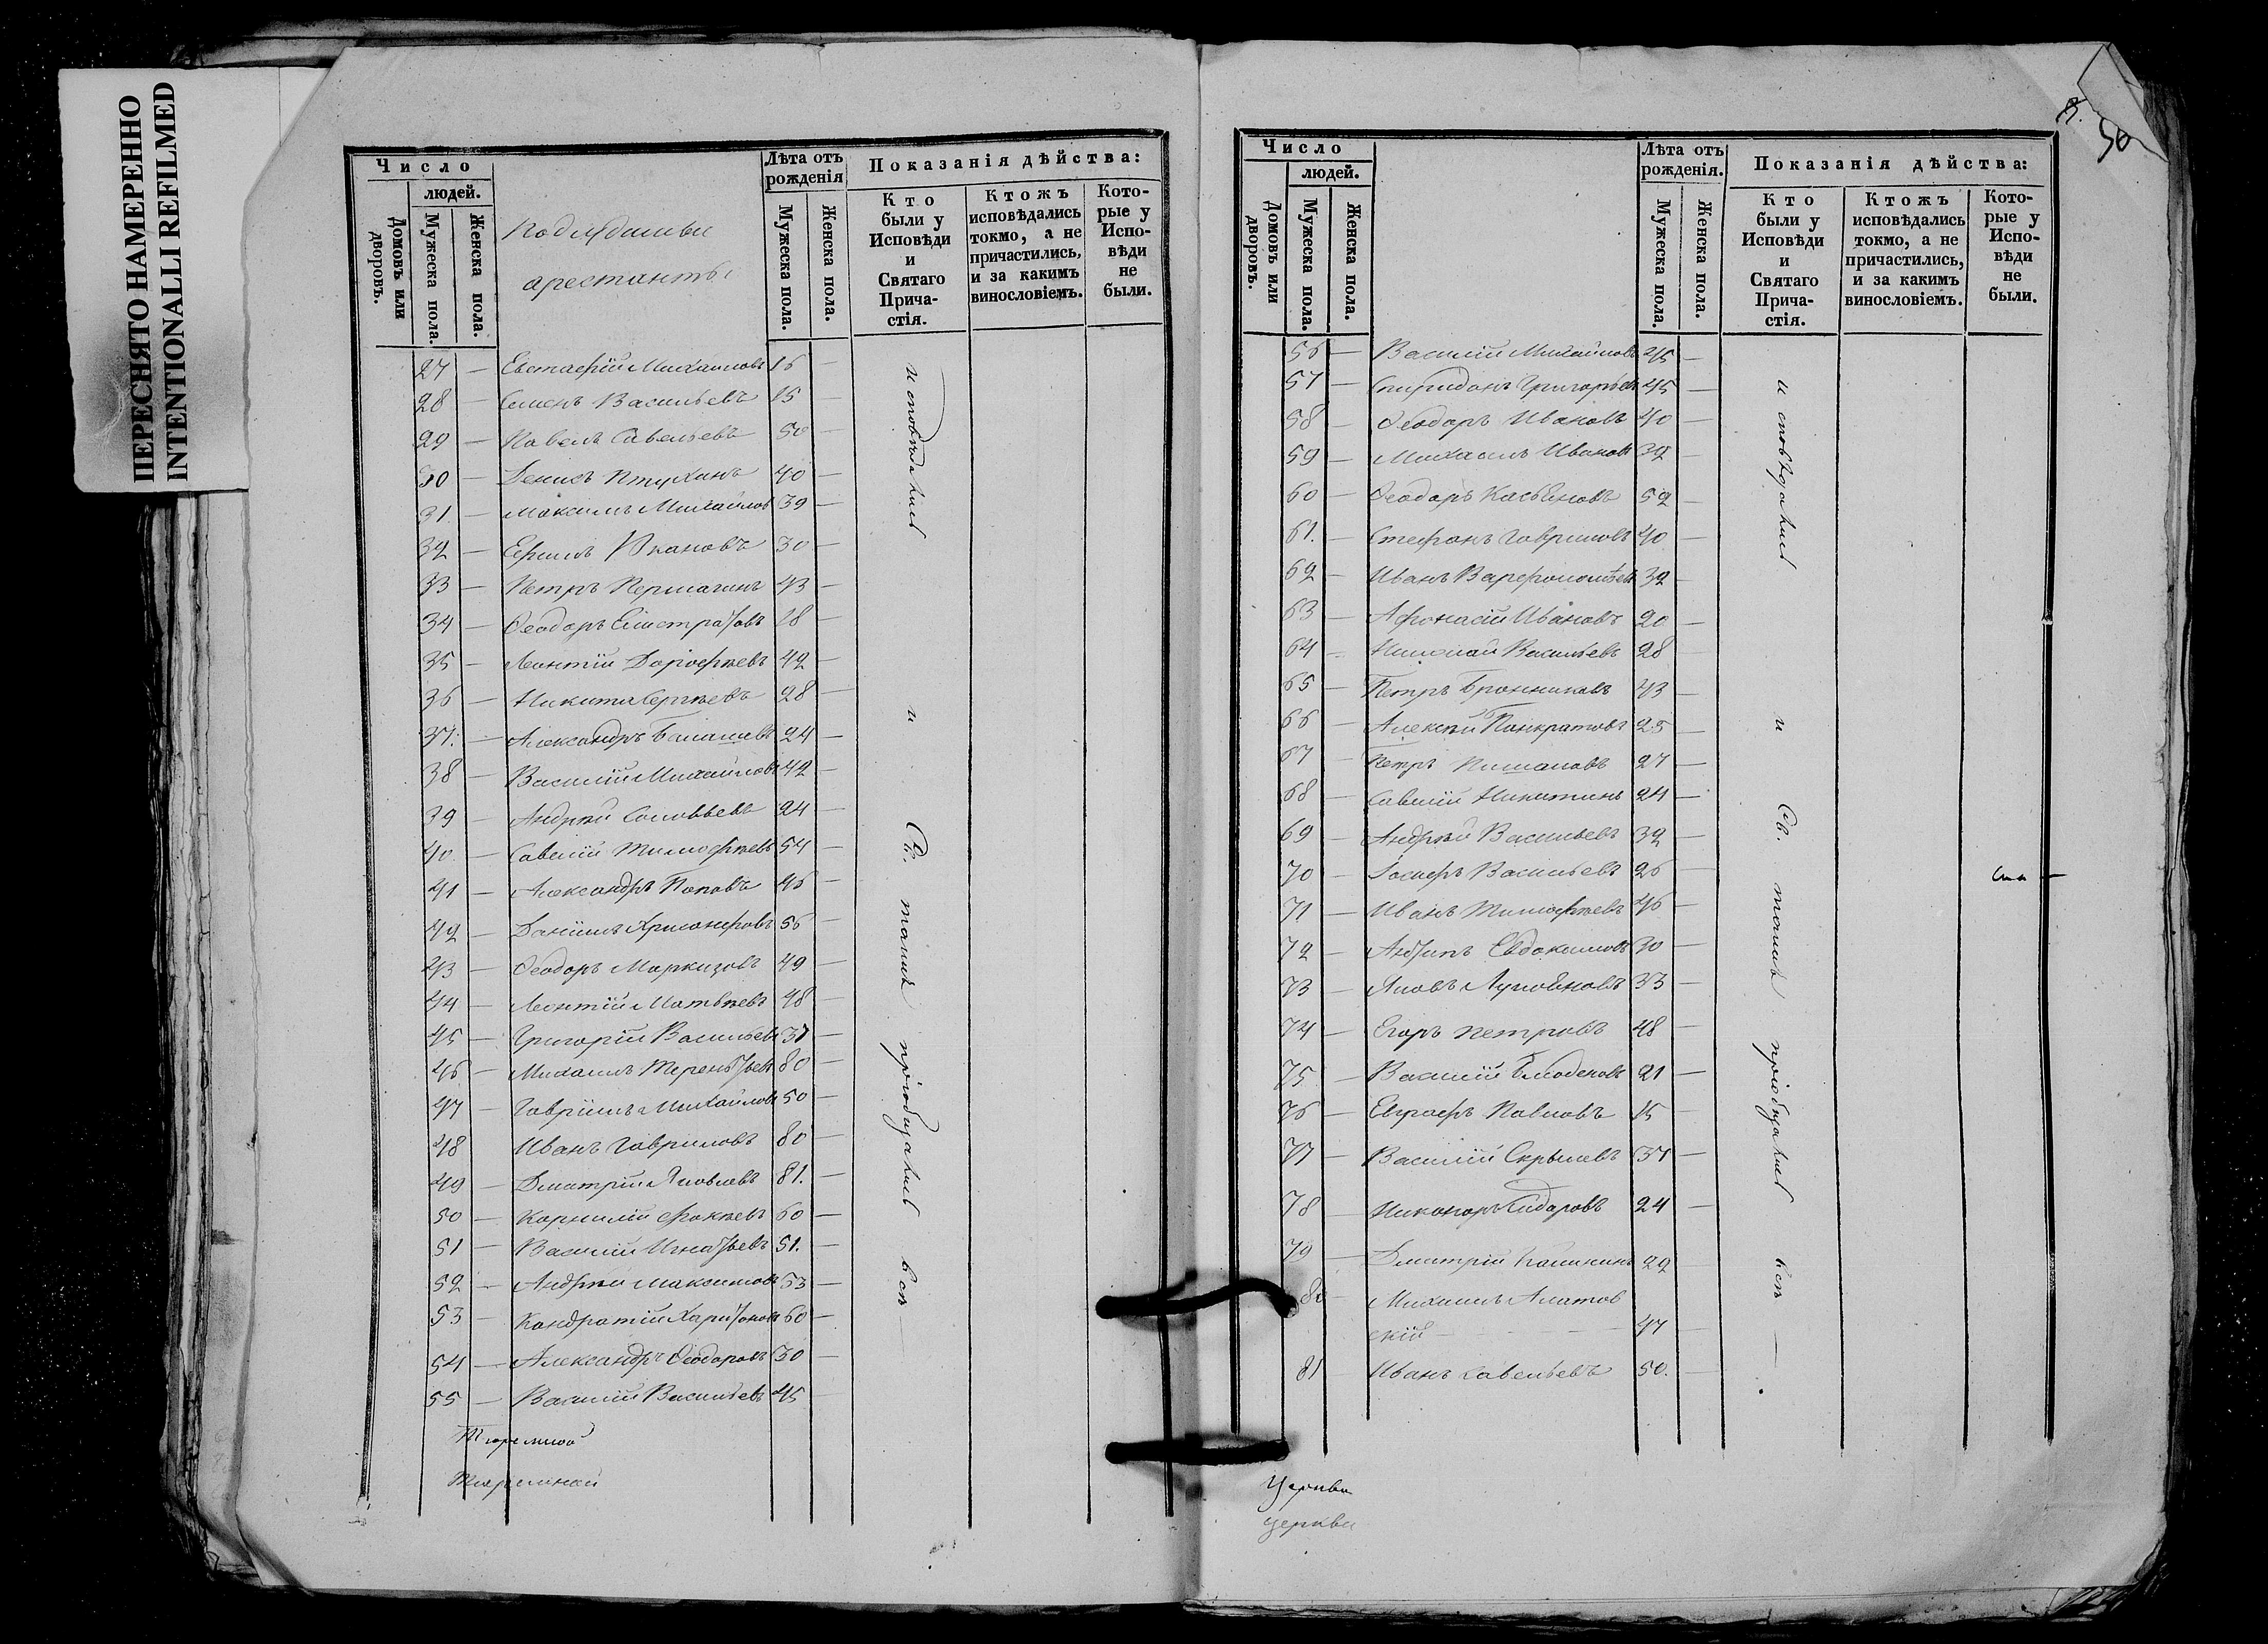 ПЕРЕСНЯТО НАМЕРЕННО
INTENTIONALLI REFILMED
Число
людей.
Домовъ или дворовъ.
Мужеска пола.
Женска пола.
Подсудимые
арестанты
Лѣта отъ рожденія
Мужеска пола.
Женска пола.
Показанія дѣйства:
Кто были у Исповѣди и Святаго Причастія.
Ктожъ исповѣдались токмо, а не причастились, и за какимъ винословіемъ.
Которые у Исповѣди не были.
27 — Евстафій Михаиловъ 16 —
28 — Семенъ Васильевъ 15 —
29 — Павелъ Савельевъ 50 —
30 — Денисъ Птухинъ 40 —
31. — Максимъ Михайлов 39 —
32 — Ефимъ Ивановъ 30 —
33 — Петръ Пермагинъ 43 —
34 — Ѳеодоръ Елистратовъ 28 —
35 — Леонтій Дороѳѣевъ 42 —
36 — Никита Сергѣевъ 28 —
37. — Александръ Балашевъ 24 —
38 — Василій Михайловъ 42 —
39 — Андрѣй Соловьевъ 24 —
40. — Савелій Тимофѣевъ 54 —
41 — Александръ Поповъ 46 —
42 — Даніилъ Хрисанфовъ 56 —
43 — Ѳеодоръ Маркизовъ 49 —
44 — Леонтій Матвѣевъ 48 —
45 — Григорій Васильевъ 37 —
46 — Михаилъ Терентьевъ 80 —
47 — Гавріилъ Михайловъ 50 —
48 Иванъ Гавриловъ 80 —
49 — Дмитрій Яковлевъ 81. —
50 — Корнилій Фокѣевъ 60 —
51 — Василій Игнатьевъ 51. —
52 — Андрѣй Максимовъ 53 —
53 — Кондратій Харитоновъ 60 —
54 — Александръ Ѳеодоровъ 30 —
55 — Василій Васильевъ 45
исповѣдались
и
Св. таинъ
пріобщались
всѣ —
Тюремной
Тюремной
50
Число
людей.
Домовъ или дворовъ.
Мужеска пола.
Женска пола.
Лѣта отъ рожденія.
Мужеска пола.
Женска пола.
Показанія дѣйства:
Кто были у Исповѣди и Святаго Причастія.
Ктожъ исповѣдались токмо, а не причастились, и за какимъ винословіемъ.
Которые у Исповѣди не были.
56 — Василій Михайловъ 45 —
57 — Спиридонъ Григорьевъ 45 —
58 — Ѳеодоръ Ивановъ 40 —
59 — Михаилъ Иванов 32 —
60 — Ѳеодоръ Касьяновъ 52 —
61. — Стефанъ Гавриловъ 40 —
62 — Иванъ Варфоломѣев 32 —
63 — Афонасій Ивановъ 20 —
64 — Николай Васильевъ 28 —
65 — Петръ Бронниковъ 43 —
66 — Алексѣй Панкратовъ 25 —
67 — Петръ 27 —
68 — Савелій Никитинъ 24 —
69 — Андрѣй Васильевъ 32 —
70 — Іосифъ Васильевъ 26 —
71 — Иванъ Тимофѣевъ 46 —
72 — Антипъ Евдокимовъ 30 —
73 — Яковъ Лукояновъ 33 —
74 — Егоръ Петровъ 48 —
75 — Василій 21 —
76 — Евграфъ Павловъ 15 —
77 — Василій Скрылевъ 37 —
78 — Никаноръ Сидоровъ 24 —
79 — Дмитрій Калинкинъ 22 —
80 — Михаилъ Алатов
скій — 47 —
81 Иванъ Савельевъ 50. —
исповѣдались
и
Св. таинъ
пріобщались
всѣ —
Церкви
церкви